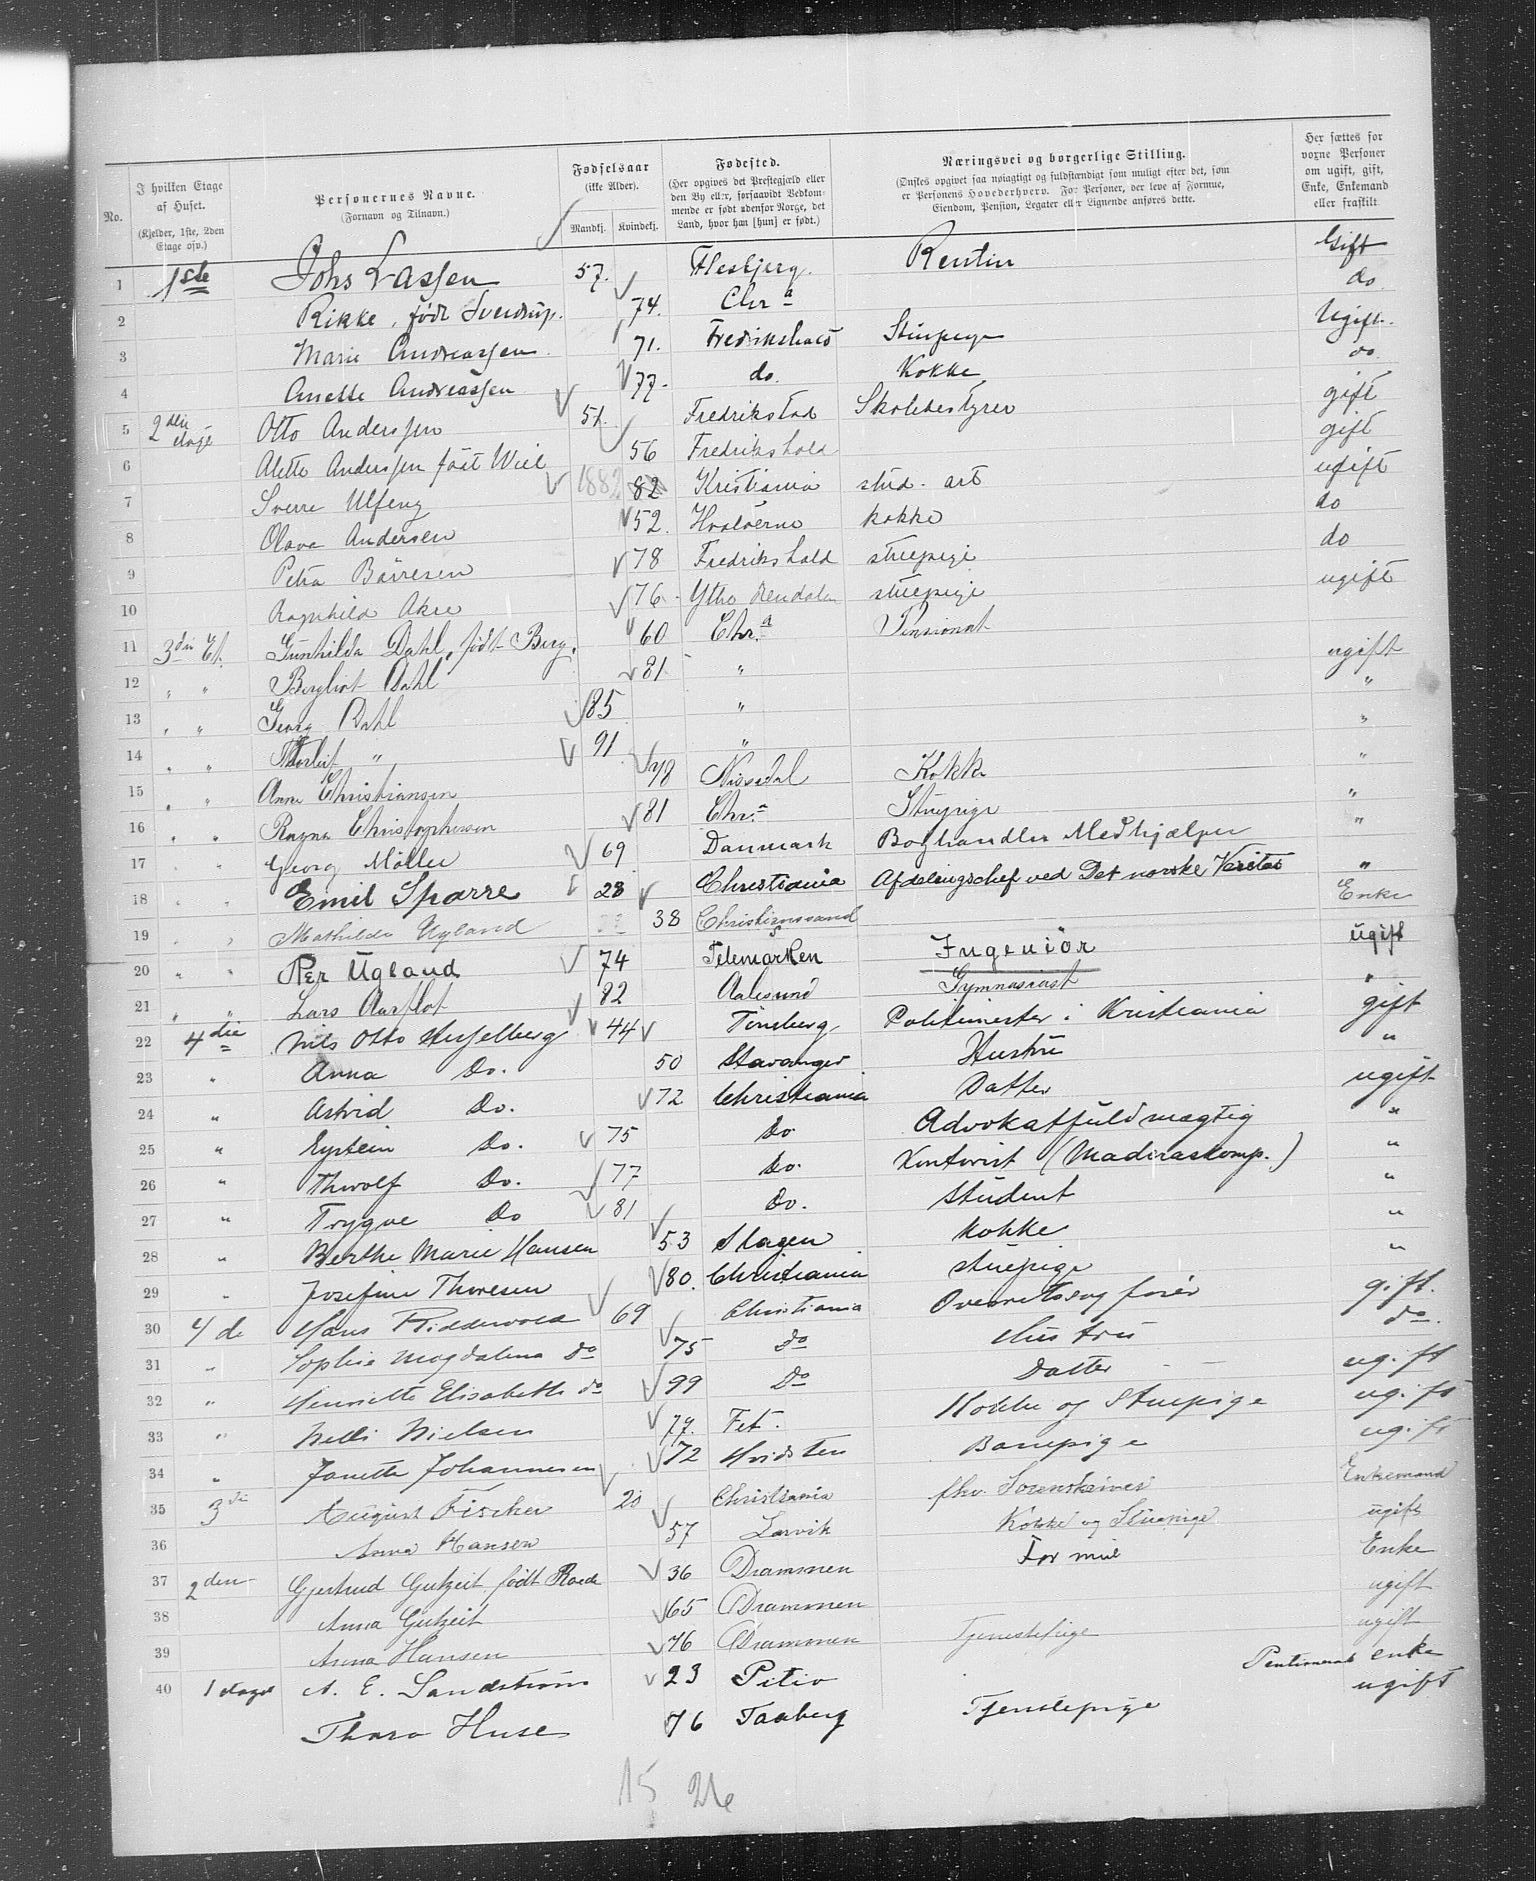 No.
I hvilken Etage af Huset. (Kjelder, 1ste, 2den Etage osv.)
Personernes Navne. (Fornavn og Tilnavn.)
Fødselsaar (ikke Alder). Mandkj. Kvindekj.
Fødested. (Her opgives det Prestegjæld eller den By eller, forsaavidt Vedkommende er født udenfor Norge, det Land, hvor han [hun] er født.)
Næringsvei og borgerlige Stilling. (Ønskes opgivet saa nøiagtigt og fuldstændigt som muligt efter det, som er Personens Hovederhverv. For Personer, der leve af Formue, Eiendom, Pension, Legater eller Lignende anføres dette.
Her sættes for voxne Personer om ugift, gift, Enke, Enkemand eller fraskilt
1 1ste Johs Lassen 57. Flesbjerg. Rentier Gift
2 Rikke, født Sverdrup. 74. Chra do
3 Marie Andreassen 71. Fredrikshald Stuepige Ugift.
4 Anette Andreassen 77. do. Kokke do
5 2den etage Otto Anderssen 51. Fredrikstad Skolebestyrer gift
6 Alette Anderssen født Wiel 56 Fredrikshald gift
7 Sverre Ulfeng 1882 82 Kristiania stud. art ugift
8 Olava Andersen 52. Hvaløerne kokke do
9 Petra Børresen 78 Fredrikshald stuepige do
10 Ragnhild Akre 76. Ytre Rendalen stuepige ugift
11 3die Et. Gunhilda Dahl, født Berg. 60 Chr.a Pensionat
12 " " Bergliot Dahl 81 " ugift
13 " " Georg Dahl 85 " "
14 " " Thorleif " 91 " "
15 " " Anna Christiansen 78 Nissedal Kokke "
16 " " Ragna Christophersen 81 Chr.a Stuepige "
17 " Georg Møller 69 Danmark Boghandler Medhjælper "
18 " " Emil Sparre 28 Christiania Afdelingschef ved Det norske Veritas "
19 " " Mathilde Ugland 38 Christianssand Enke
20 " " Per Ugland 74 Telemarken Ingeniør ugift
21 " " Lars Aarflot 82 Aalesund Gymnasiast "
22 4die Nils Otto Hesselberg 44 Tønsberg Politimester i Kristiania gift
23 " Anna Do. 50 Stavanger Hustru "
24 " Astrid Do. 72 Christiania Datter ugift
25 " Eystein Do. 75 Do Advokatfuldmægtig "
26 " Thorolf Do. 77 Do. Kontorist (Madeiraskomp.) "
27 " Trygve Do 81 Do. student "
28 " Berthe Marie Hansen 53 Slagen kokke "
29 " Josefine Thoresen 80. Christiania stuepige "
30 4de Hans Riddervold 69 Christiania Overretssagfører gift.
31 " Sophie Magdalena do 75 Do Hustru do.
32 " Henriette Elisabeth do 99 Do Datter ugift
33 " Nelli Nielsen 77. Fet. Kokke og Stuepige ugift
34 " Janette Johannesen 72 Hvidsten Barnepige ugift
35 3die August Fischer 20 Christiania fhv. Sorenskriver Enkemand
36 Anna Hansen 57 Larvik Kokke og Stuepige ugift
37 2den Gjertrud Gutzeit født Roede 36 Drammen Formue Enke
38 Anna Gutzeit 65 Drammen ugift
39 Anna Hansen 76 Drammen Tjenestepige ugift
40 1 etage A. E. Sandstrøm 23 Piteo Pentioneret enke
Thora Huse 76 Taaberg Tjenstepige ugift
15 26